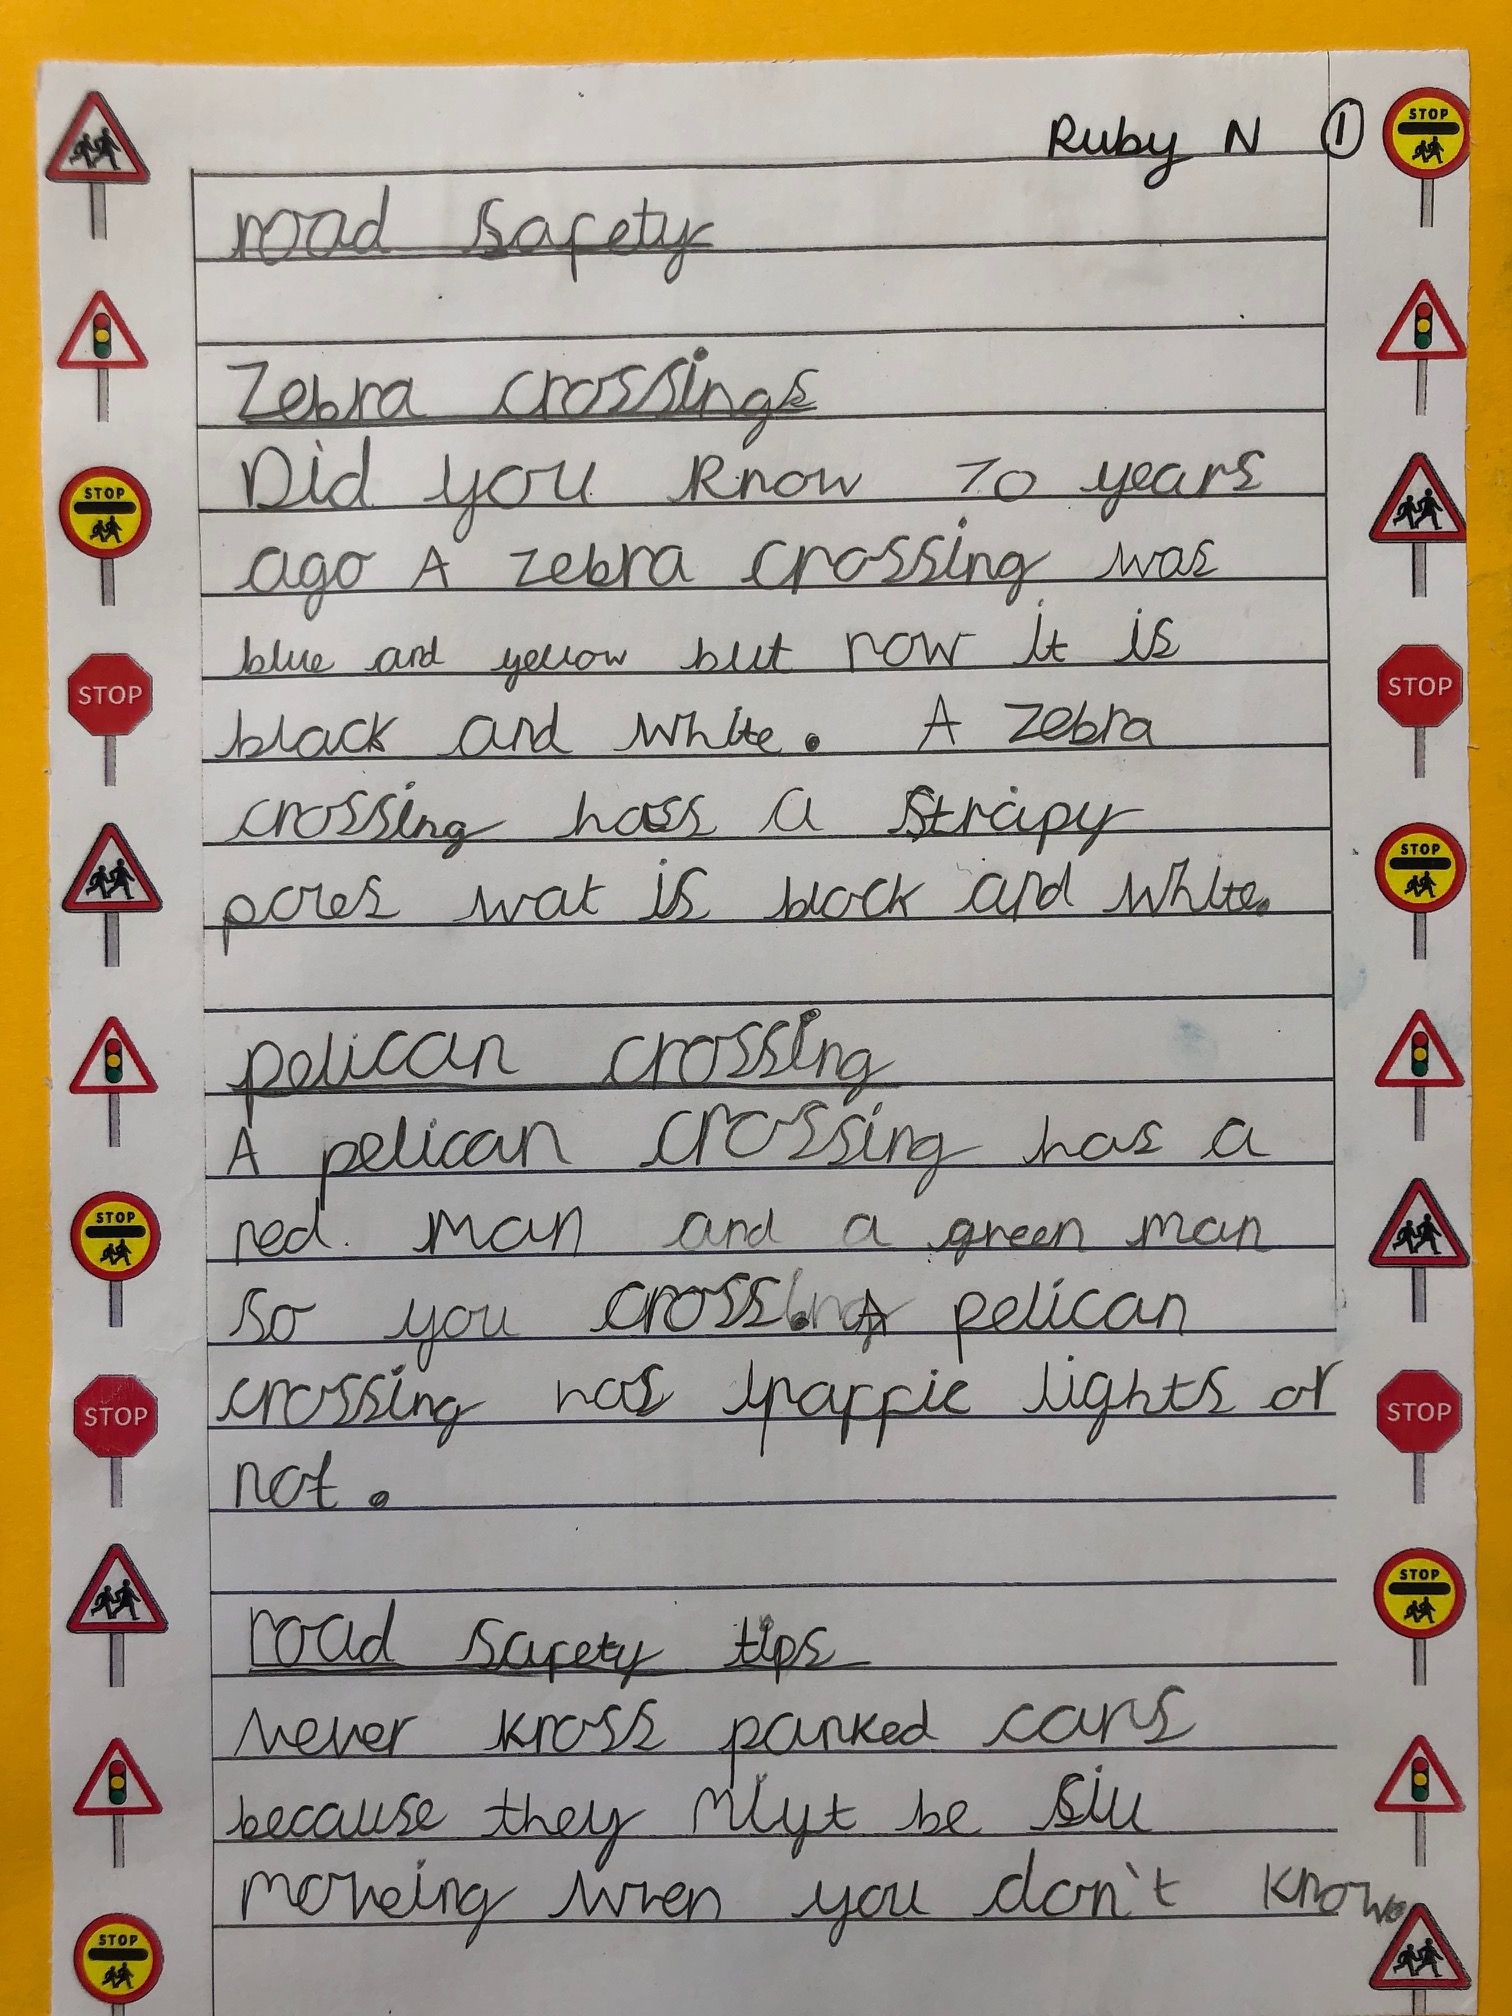 Ruby N 1
road safety
Zebra crossings
Did you Know 70 years
ago A zebra crossing was
blue and yellow but now it is
black and white. A zebra
crossing hass a strapy
pores wat is black and white.
pelican crossing
A pelican crossing has a
red man and a green man
so you cross. A pelican
crossing has traffic lights or
not.
road safety tips
Never kross parked cars
because they miyt be sill
moveing when you don't know.
STOP
STOP
STOP
STOP
STOP
STOP
STOP
STOP
STOP
STOP